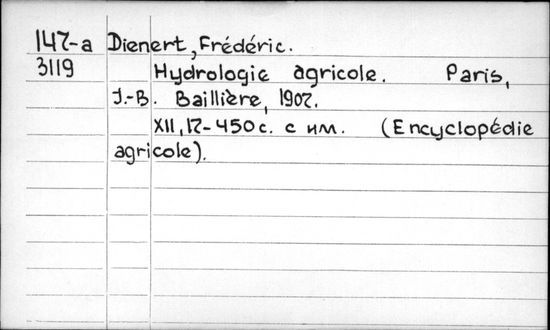 147-a Dienert, Frédéric.
3119 Hydrologie agricole. Paris,
J.-B. Baillière, 1907.
XII, 17-450 c. с ил. (Encyclopédie
agricole).